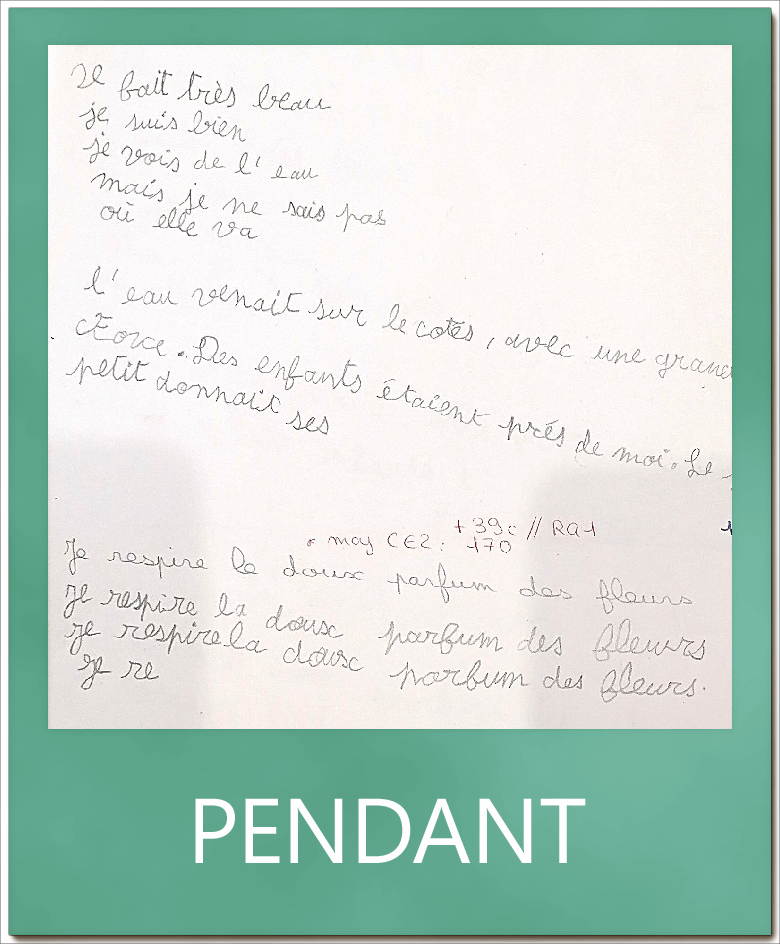 Il fait très beau
je suis bien
je vois de l'eau
mais je ne sais pas
où elle va
l'eau venait sur le cotés, avec une grand
Force. Des enfants étaient prés de moi. Le
petit donnait ses
+39c // RA1
moy CE2: 170
Je respire le doux parfum des fleurs
Je respire la doux parfum des fleurs
Je respire la doux parfum des fleurs.
Je re
PENDANT